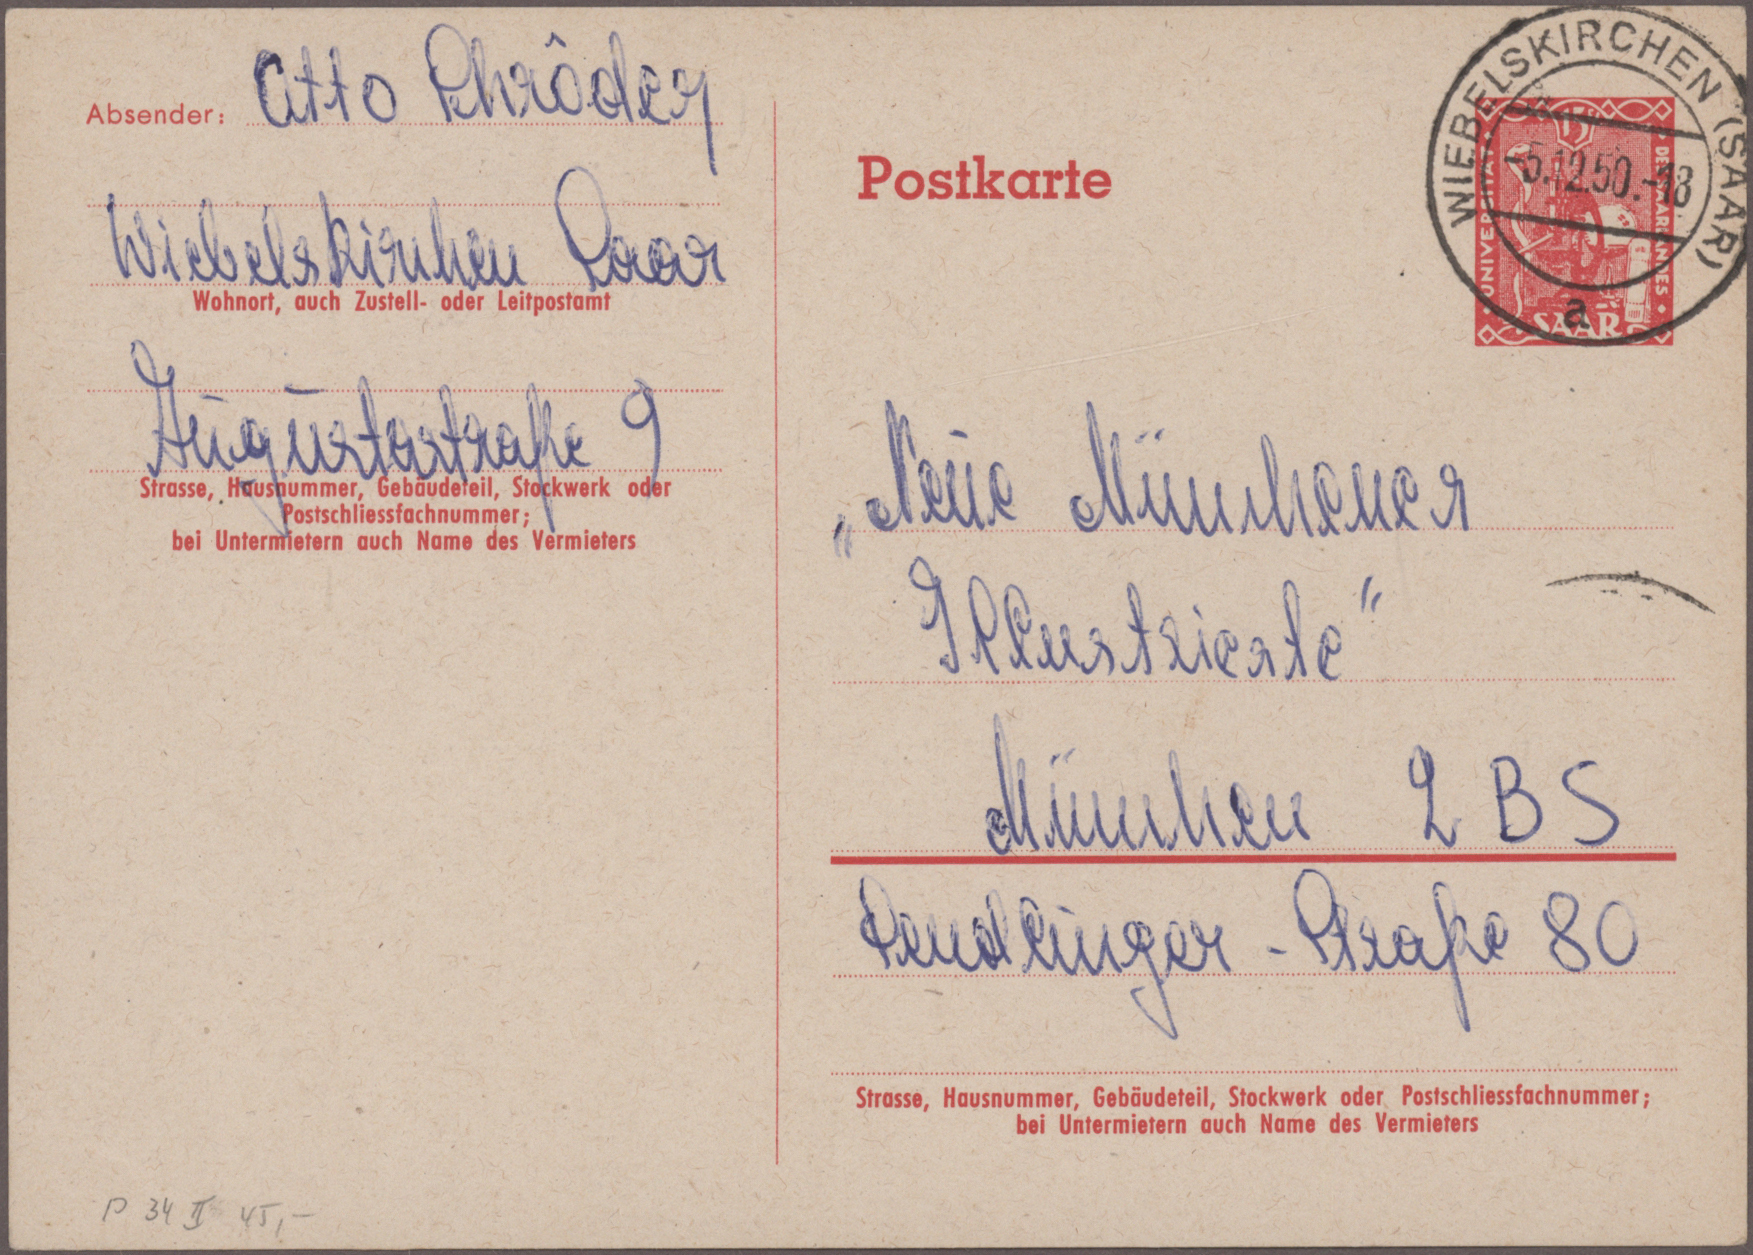 Absender: Otto Schröder
Wiebelskirchen Saar
Wohnort, auch Zustell- oder Leitpostamt
Augustastraße 9
Strasse, Hausnummer, Gebäudeteil, Stockwerk oder
Postschliessfachnummer;
bei Untermietern auch Name des Vermieters
P 34 II 45,-
Postkarte
WIEBELSKIRCHEN (SAAR)
-5.12.50.-18
a
15
UNIVERSITÄT
DES SAARLANDES
SAAR
„Neue Münchener
Illustrierte“
München 2 BS
Sendlinger-Straße 80
Strasse, Hausnummer, Gebäudeteil, Stockwerk oder Postschliessfachnummer;
bei Untermietern auch Name des Vermieters